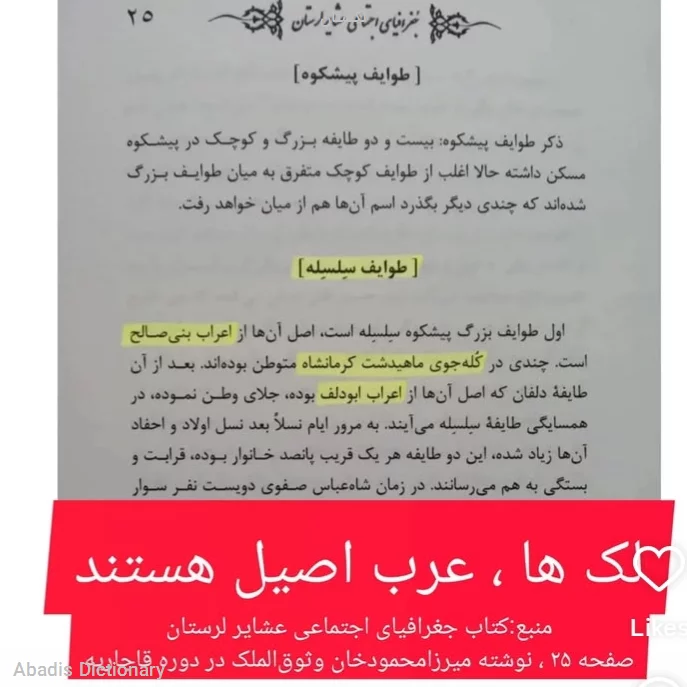 ۲۵
جغرافیای اجتماعی عشایر لرستان
[ طوایف پیشکوه ]
ذکر طوایف پیشکوه: بیست و دو طایفه بزرگ و کوچک در پیشکوه
مسکن داشته حالا اغلب از طوایف کوچک متفرق به میان طوایف بزرگ
شده‌اند که چندی دیگر بگذرد اسم آن‌ها هم از میان خواهد رفت.
[ طوایف سِلسِله ]
اول طوایف بزرگ پیشکوه سِلسِله است، اصل آن‌ها از اعراب بنی‌صالح
است. چندی در کُله‌جوی ماهیدشت کرمانشاه متوطن بوده‌اند. بعد از آن
طایفهٔ دلفان که اصل آن‌ها از اعراب ابودلف بوده، جلای وطن نموده، در
همسایگی طایفهٔ سِلسِله می‌آیند. به مرور ایام نسلاً بعد نسل اولاد و احفاد
آن‌ها زیاد شده، این دو طایفه هر یک قریب پانصد خانوار بوده، قرابت و
بستگی به هم می‌رسانند. در زمان شاه‌عباس صفوی دویست نفر سوار
لک ها ، عرب اصیل هستند
منبع:کتاب جغرافیای اجتماعی عشایر لرستان
Likes
صفحه ۲۵ ، نوشته میرزامحمودخان وثوق‌الملک در دوره قاجاریه
Abadis Dictionary